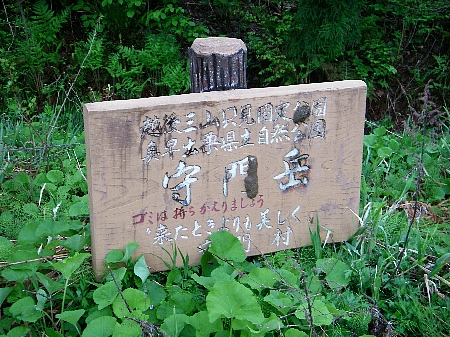 越後三山只見国定公園
奥早出粟守門県立自然公園
守門岳
ゴミは持ちかえりましょう
来たときよりも美しく
守門村